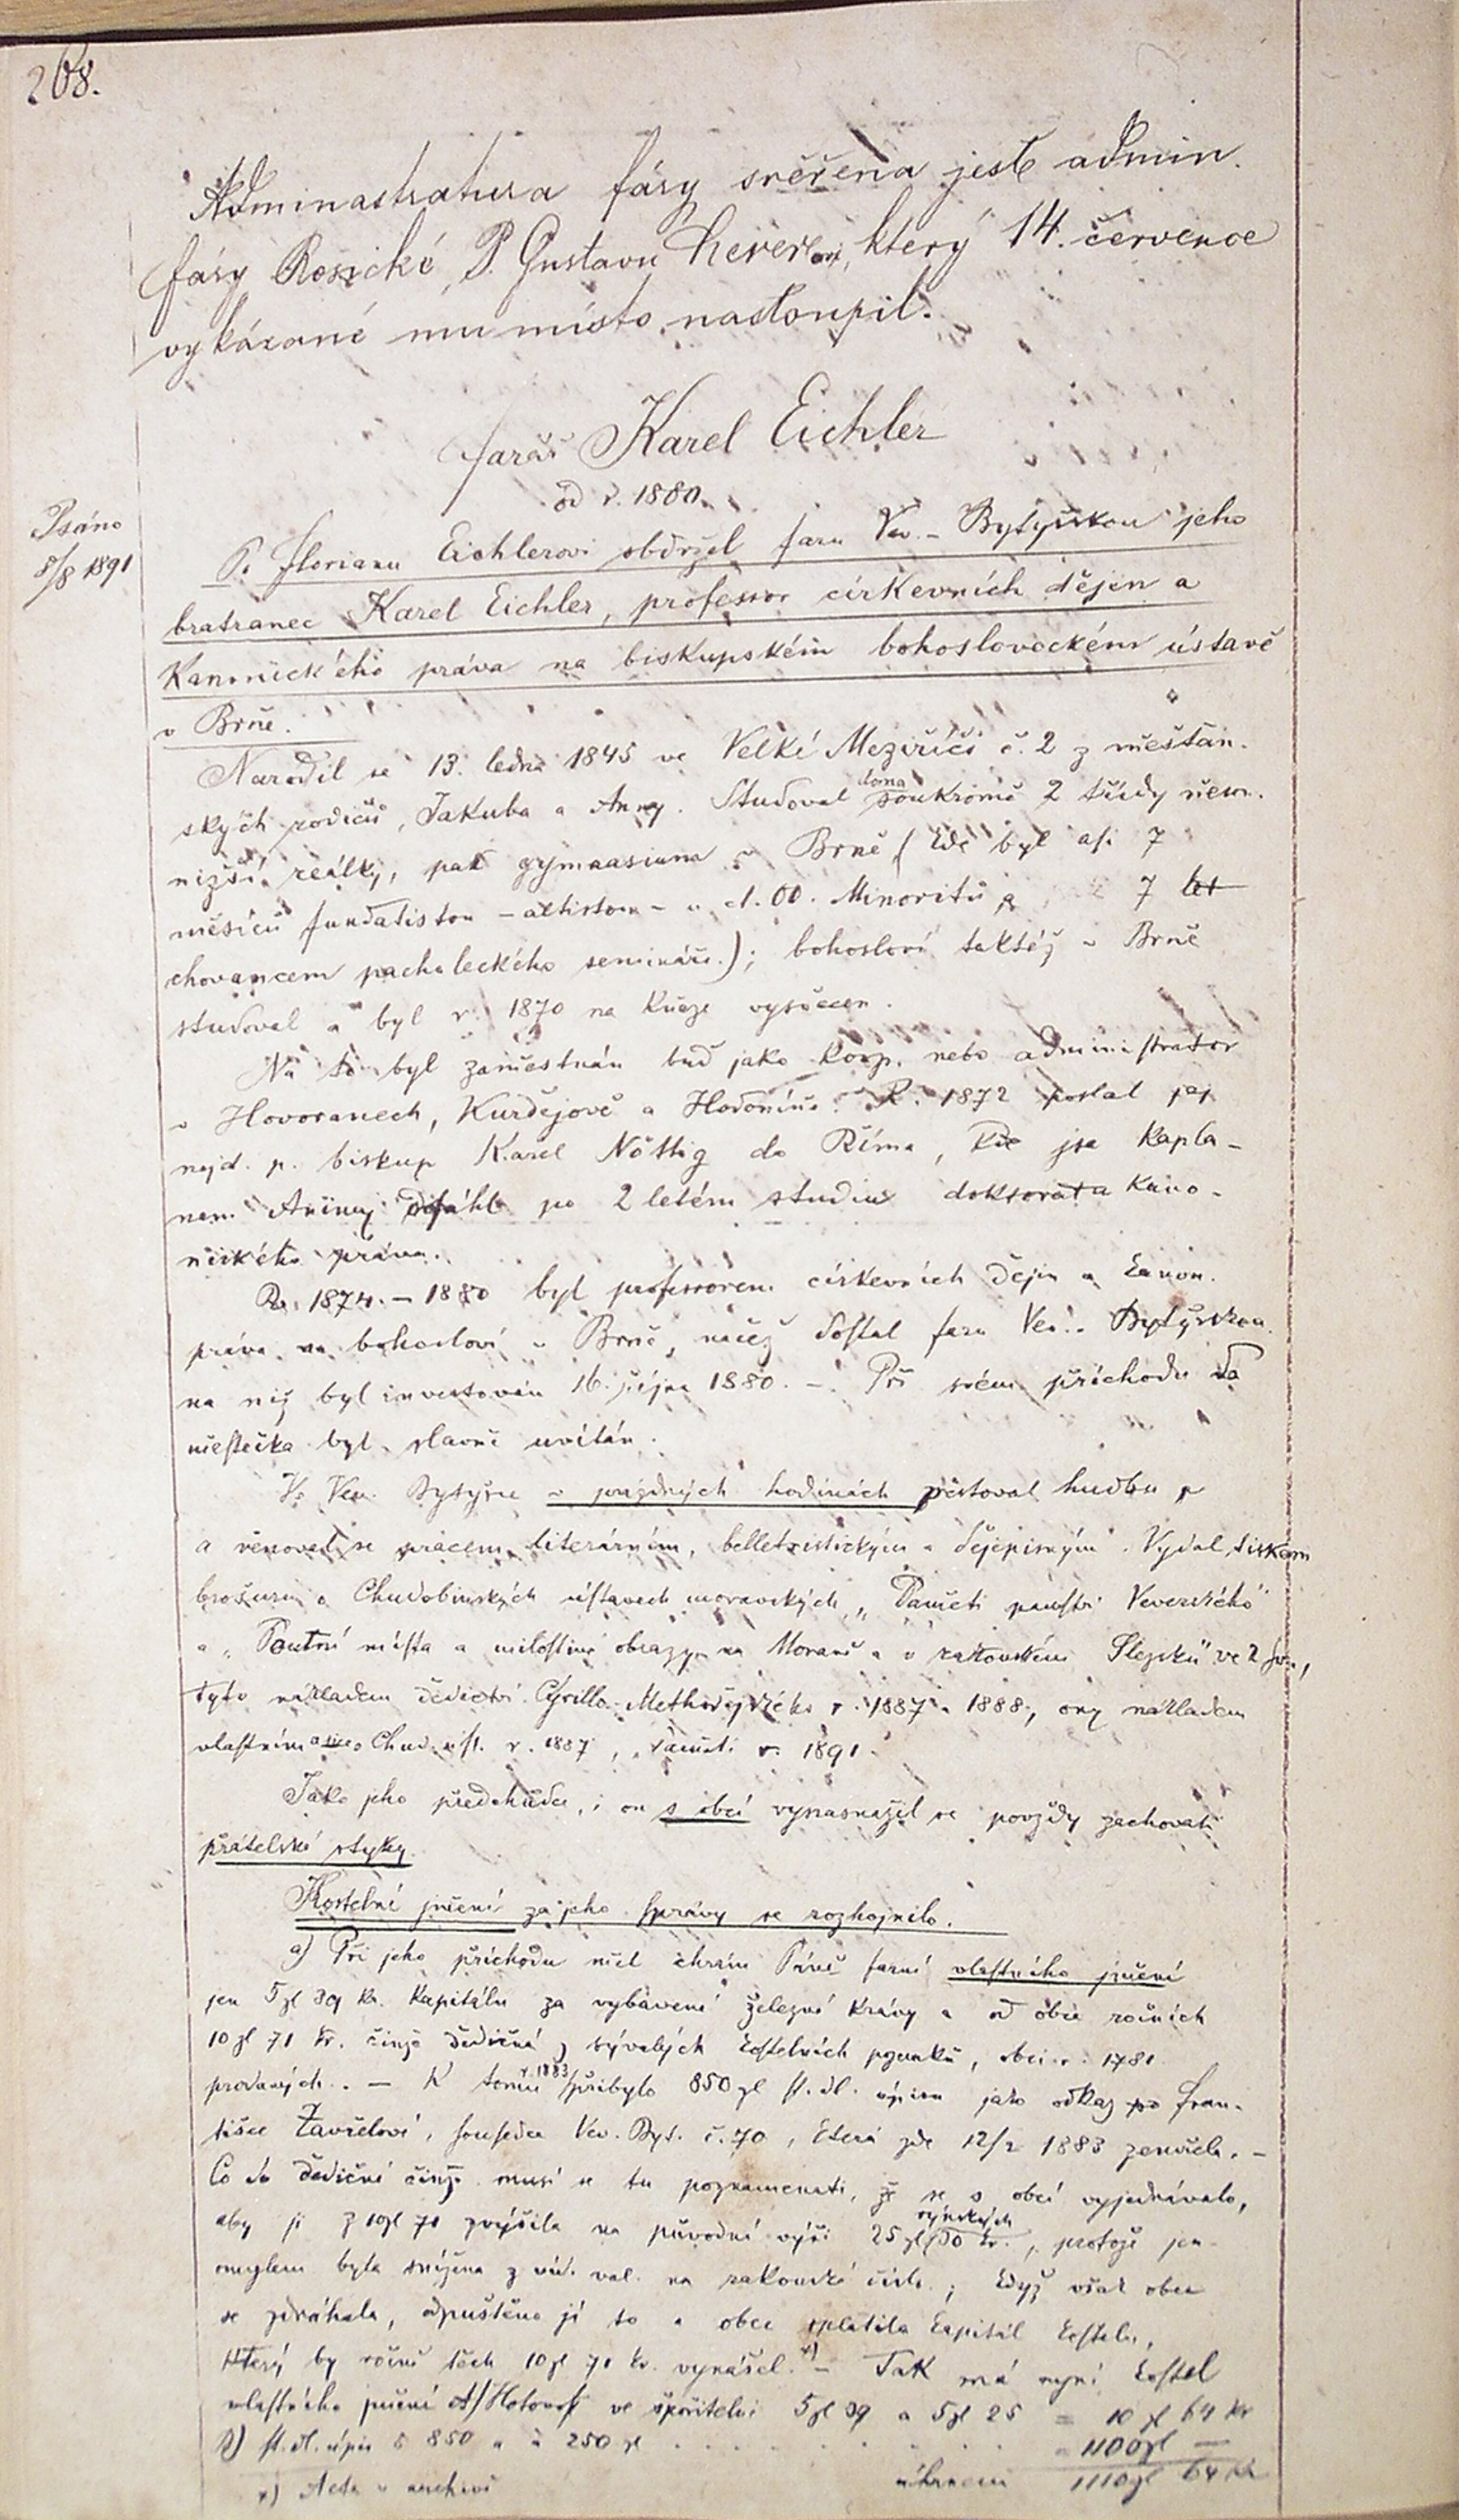 268.
Adminastratura fáry svěřena jest admin.
fáry Rosické, P. Gustavu který 14. července
vykázané mu místo nastoupil.
farář Karel Eichler
od r. 1880.
Psáno
8/8 1891
Po Florianu Eichlerovi obdržel faru Vev.- Bytyšskou jeho
bratranec Karel Eichler, professor církevních dějin a
Kanonického práva na biskupském bohosloveckém ústavě
v Brně.
Narodil se 13. ledna 1845 ve Velké Meziříčí č. 2 z měšťan-
ských rodičů, Jakuba a Anny. Studoval doma soukromě 2 třídy něm.
nižší reálky, pak gymnasium v Brně (kde byl asi 7
měsíců fundatistou - altistou - u ct. OO. Minoritů a 7 let
chovancem pacholeckého semináře.); bohosloví taktéž v Brně
studoval a byl r. 1870 na kněze vysvěcen.
Na to byl zaměstnán buď jako koop. nebo administrator
v Hovoranech, Kurdějově a Hodoníně. R. 1872 poslal jej
nejd. p. biskup Karel Nöttig do Říma, kde jsa Kapla-
nem Animy dosáhl po 2 letém studiu doktorata kano-
nického práva.
R. 1874. - 1880 byl professorem církevních dějin a kanon.
práva na bohosloví v Brně, načež dostal faru Vev. Bytyškou
na niž byl investován 16. října 1880. - Při svém příchodu do
městečka byl slavně uvítán.
Ve Vev. Bytyšce v prázdných hodinách pěstoval hudbu
a věnoval se pracem literárním, belletristickým a dějepisným. Vydal tiskem
brošuru o Chudobinských ústavech moravských, "Paměti panství Veverského"
a "Poutní místa a milostivé obrazy na Moravě a v rakouském Slezsku" ve 2 sv.,
tyto nákladem dědictví Cyrillo-Methodějského r. 1887 a 1888, ony nákladem
vlastním a sice Chud. úst. r. 1887, Paměti r. 1891.
Jako jeho předchůdce, i on s obcí vynasnažil se povždy zachovati
přátelské styky.
Kostelní jmění za jeho správy se rozhojnilo.
a) Při jeho příchodu měl chrám Páně farní vlastního jmění
jen 5 zl 39 kr. kapitálu za vybavení železné krávy a od obce ročních
10 zl 71 kr. činže dědičné z bývalých kostelních pozemků, obci r. 1781
prodaných. - K tomu r. 1883 přibylo 850 zl st. dl. úpisu jako odkaz po Fran-
tišce Zavřelové, sousedce Vev. Byt. č. 70, která zde 12/2 1883 zemřela. -
Co do dědičné činže musí se tu poznamenati, že se s obcí vyjednávalo,
aby ji z 10 zl 71 zvýšila na původní výši 25 zl rýnských 30 kr., protože jen
omylem byla snížena z víd. val. na rakouské čísl.; když však obec
se zdráhala, odpuštěno jí to a obec splatila kapitál kostelu,
který by ročně těch 10 zl 71 kr. vynášel. x) - Tak má nyní kostel
vlastního jmění A/ Hotovost ve spořitelni 5 zl 39 a 5 zl 25 = 10 zl 64 kr
B) st. dl. úpis s 850 a à 250 zl . . . . . . . = 1100 zl -
úhrnem 1110 zl 64 kr
x) Acta v archivě